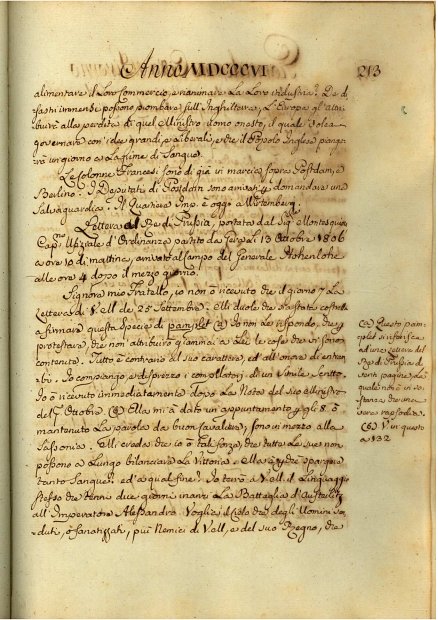 Anno MDCCCVI
213
alimentare il loro Commercio, e rianimare la loro industria? De di
sastri immensi possono piombare sull'Inghilterra, L'Europa gl'attri
buirà alla perdita di quel Ministro uomo onesto, il quale volea
governare con idee grandi, e liberali, e che il Popolo Inglese piangerà
un giorno a lagrime di Sangue.
Le Colonne Francesi sono di già in marcia sopra Postdam, e
Berlino. I Deputati di Posdam sono arrivati a domandare una
Salvaguardia. Il Quartiere Imp. è oggi a Wittemberg.
Lettera al Re di Prussia, portata dal Sig. Montesquiou
Cap. Uffiziale d'Ordinanza partito da Gera il 13 Ottobre 1806
a ore 10 di mattina, arrivato al campo del Generale Hohenlohe
alle ore 4 dopo il mezzo giorno.
Signore mio Fratello, io non ò ricevuto che il giorno 7 la
Lettera di V. M. de 25 Settembre. Mi duole che sia stata costretta
a firmare questa Specie di pamflet (a) Io non Le rispondo, che per
protestarle, che non attribuirò giammai a Lei le cose che vi sono
contenute. Tutto è contrario al suo carattere, ed all'onore di entram
bi. Io compiango, e disprezzo i compilatori di un simile scritto.
Io ò ricevuto immediatamente dopo la Nota del suo Ministro
del 1° Ottobre (b) Ella mi à dato un appuntamento gli 8. ò
mantenuto la parola da buon Cavaliere, sono in mezzo alla
Sassonia. Mi creda che io ò tal forza, che tutte le sue non
possono a lungo bilanciare la Vittoria. Ma perchè spargere
tanto Sangue? ed a qual fine? Io terrò a V. M. il linguaggio
stesso che tenni due giorni innanzi la Battaglia d'Austerlitz
all'Imperatore Alessandro. Voglia il Cielo che degli Uomini ven
duti, o fanatizzati, più Nemici di V. M. e del suo Regno, che
(a) Questo pam
phlet si riferisce
ad una Lettera del
Re di Prussia di
venti pagine, la
quale non è in so
stanza che una
vera rapsodia.
(b) V. in questo
a 192